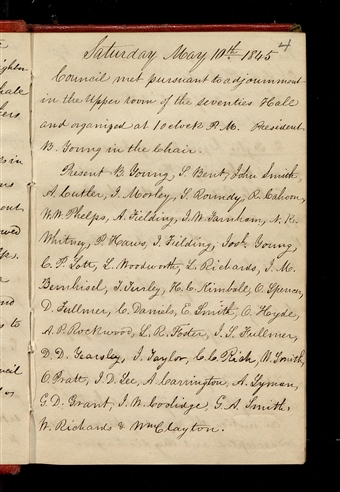 4
Saturday May 10th 1845
Council met pursuant to adjournment
in the upper room of the seventies Hall
and organized at 1 oclock P.M. President
B. Young in the Chair.
Present B. Young, S. Bent, John Smith,
A. Cutler, I. Morley, S. Roundy, R. Cahoon,
W. W. Phelps, A. Fielding, J. W. Farnham, N. K.
Whitney, P. Haws, J. Fielding, Jos. Young,
C. P. Lott, L. Woodworth, L. Richards, J. M.
Bernhisel, T. Turley, H. C. Kimball, O. Spencer,
D. Fullmer, C. Daniels, E. Smith, O. Hyde,
A. P. Rockwood, L. R. Foster, J. S. Fullmer,
D. D. Yearsley, J. Taylor, C. C. Rich, W. Smith,
O. Pratt, J. D. Lee, A. Carrington, A. Lyman,
G. D. Grant, J. W. Coolidge, G. A. Smith,
W. Richards & Wm Clayton.